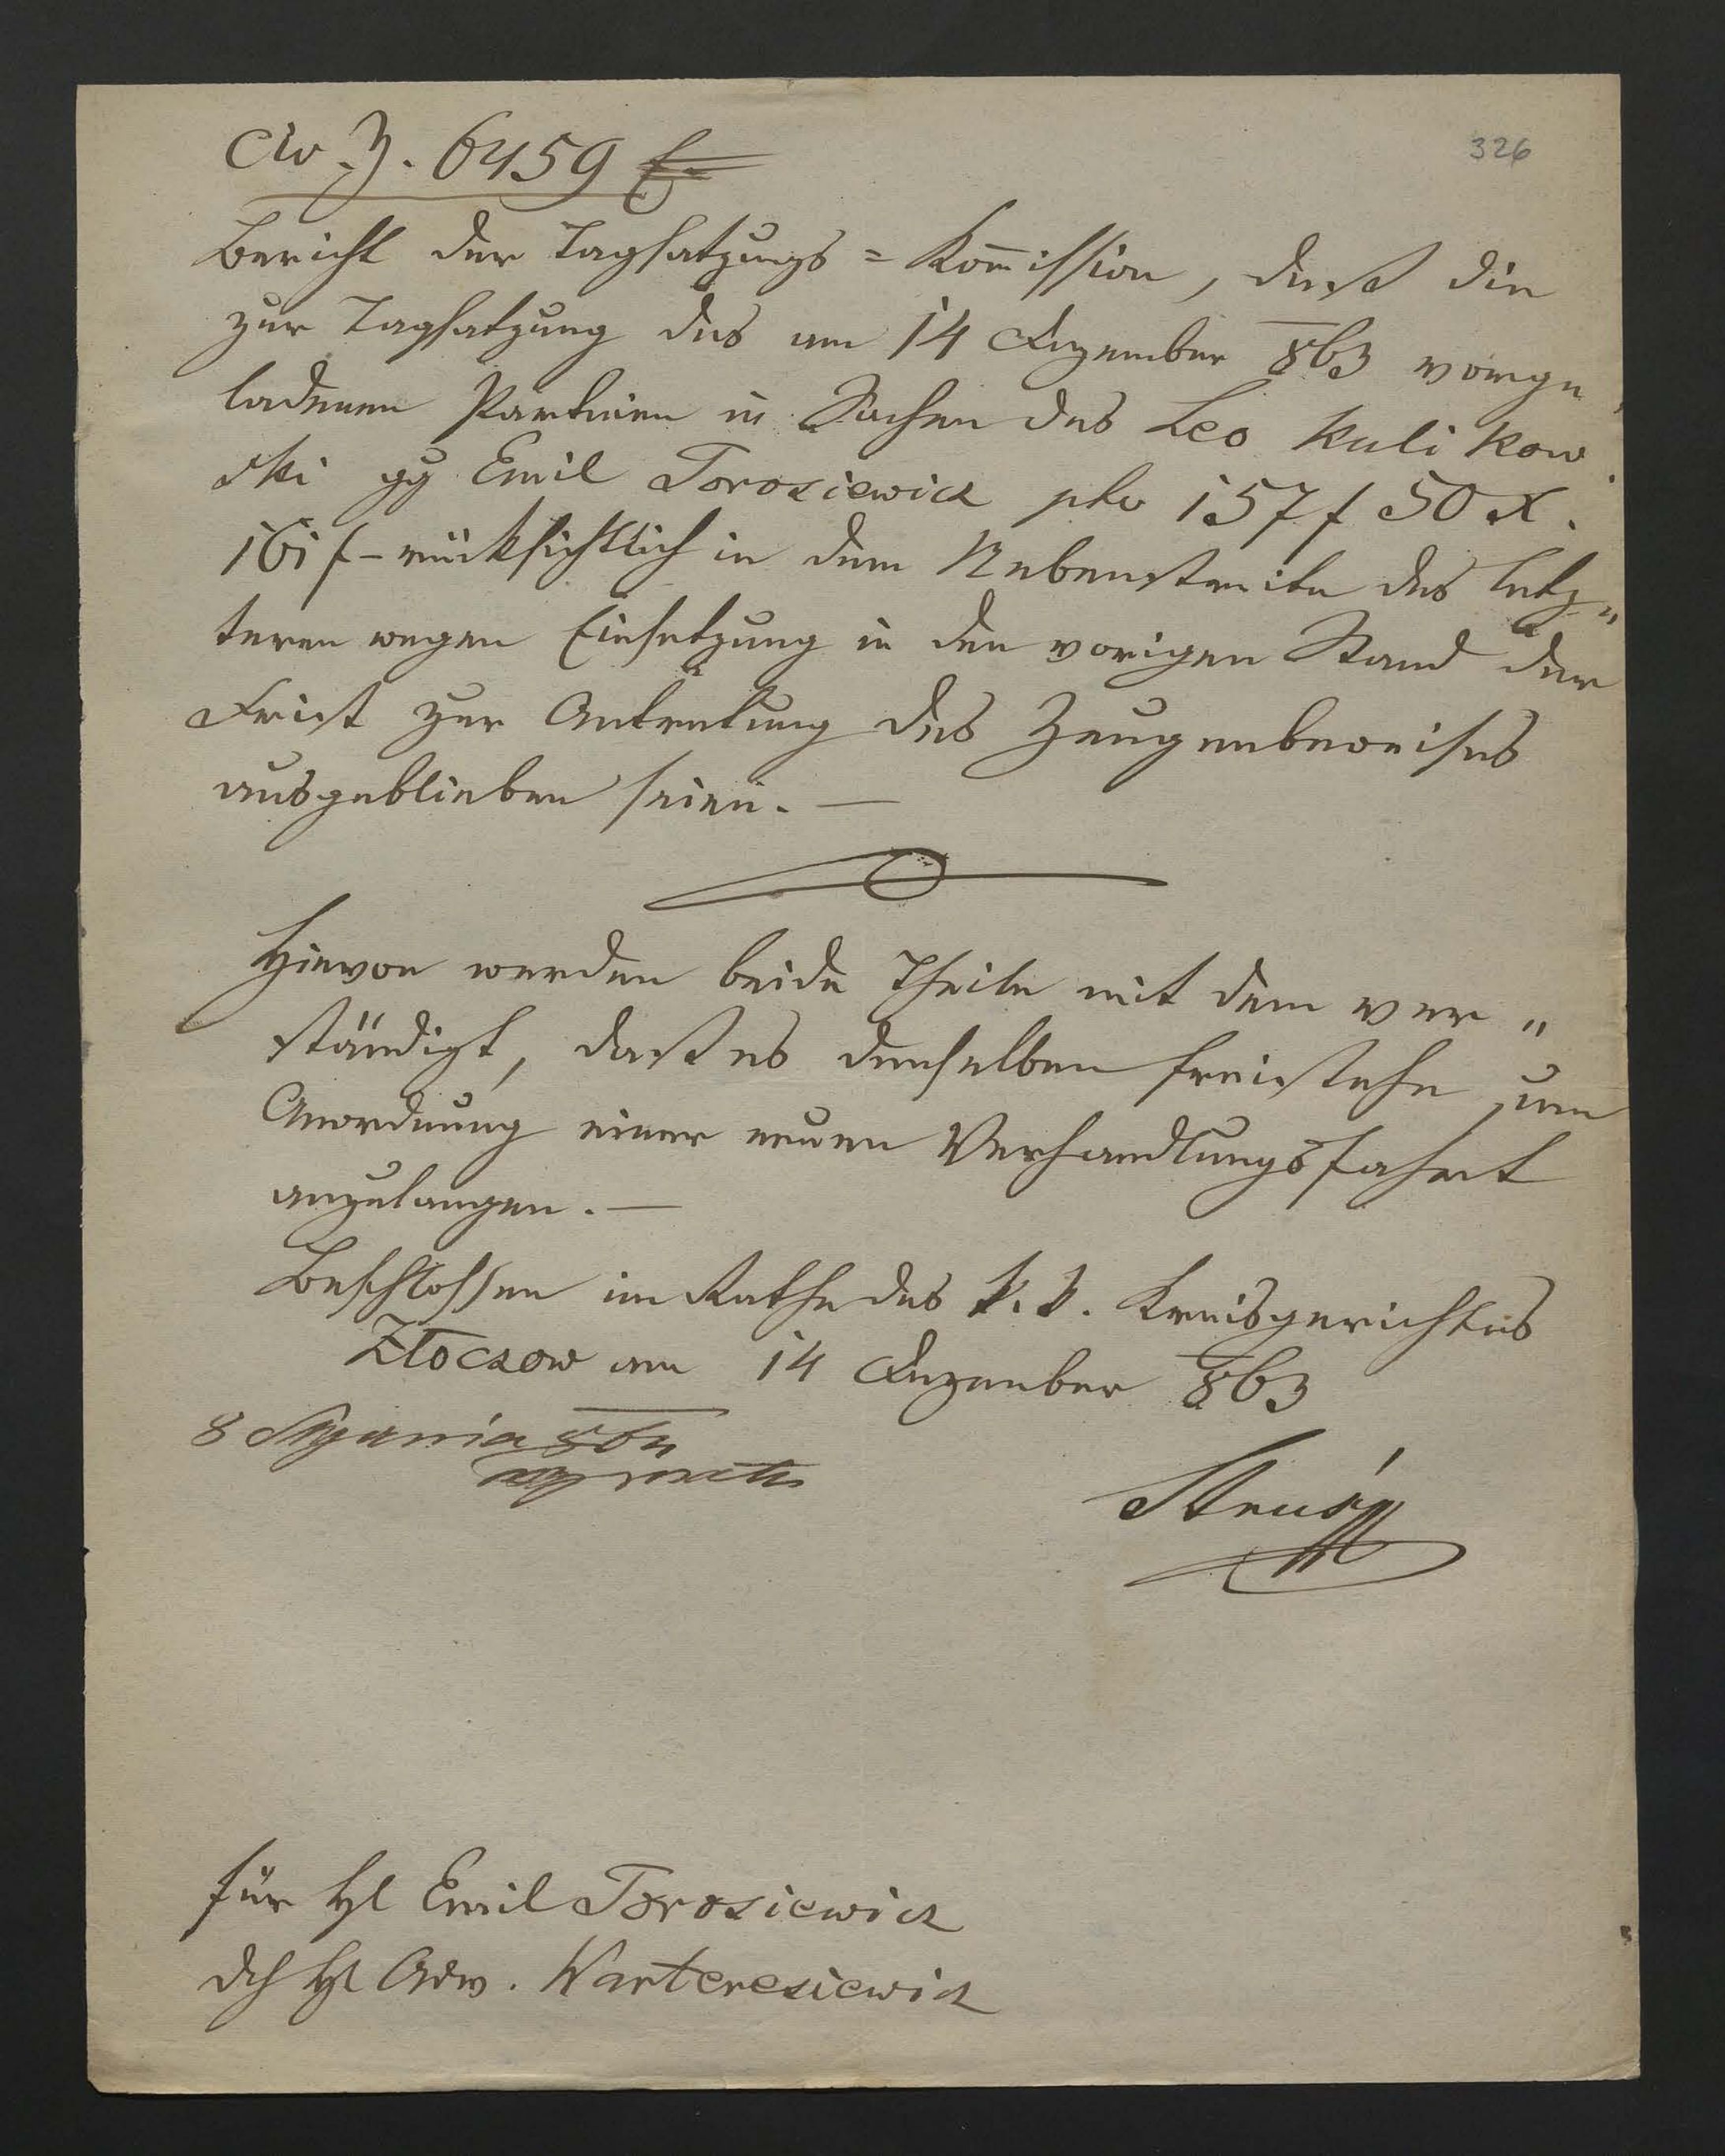 326
Civ. Z. 6459
Bericht der Tagsatzungs = Kom̄ission, daß die
zur Tagsatzung des am 14 Dezember 863 vorge
ladenen Parteien in Sachen des Leo Kulikow
ski gg Emil Torosiewicz pto 157 f 50 x.
161 f - rücksichtlich in dem Nebenstreite des letz„
teren wegen Einsetzung in den vorigen Stand der
Frist zur Antretung des Zeugenbeweises
ausgeblieben seien. —
Hievon werden beide Theile mit dem ver„
ständigt, daß es denselben freistehe, um
Anordnung einer neuen Verhandlungsfahrt
anzulangen. —
Beschlossen im Rathe des k. k. Kreisgerichtes
Złoczow am 14 Dezember 863
8 Stycznia 864
Strusz
für H Emil Torosiewicz
dch H Adv. Warteresiewicz